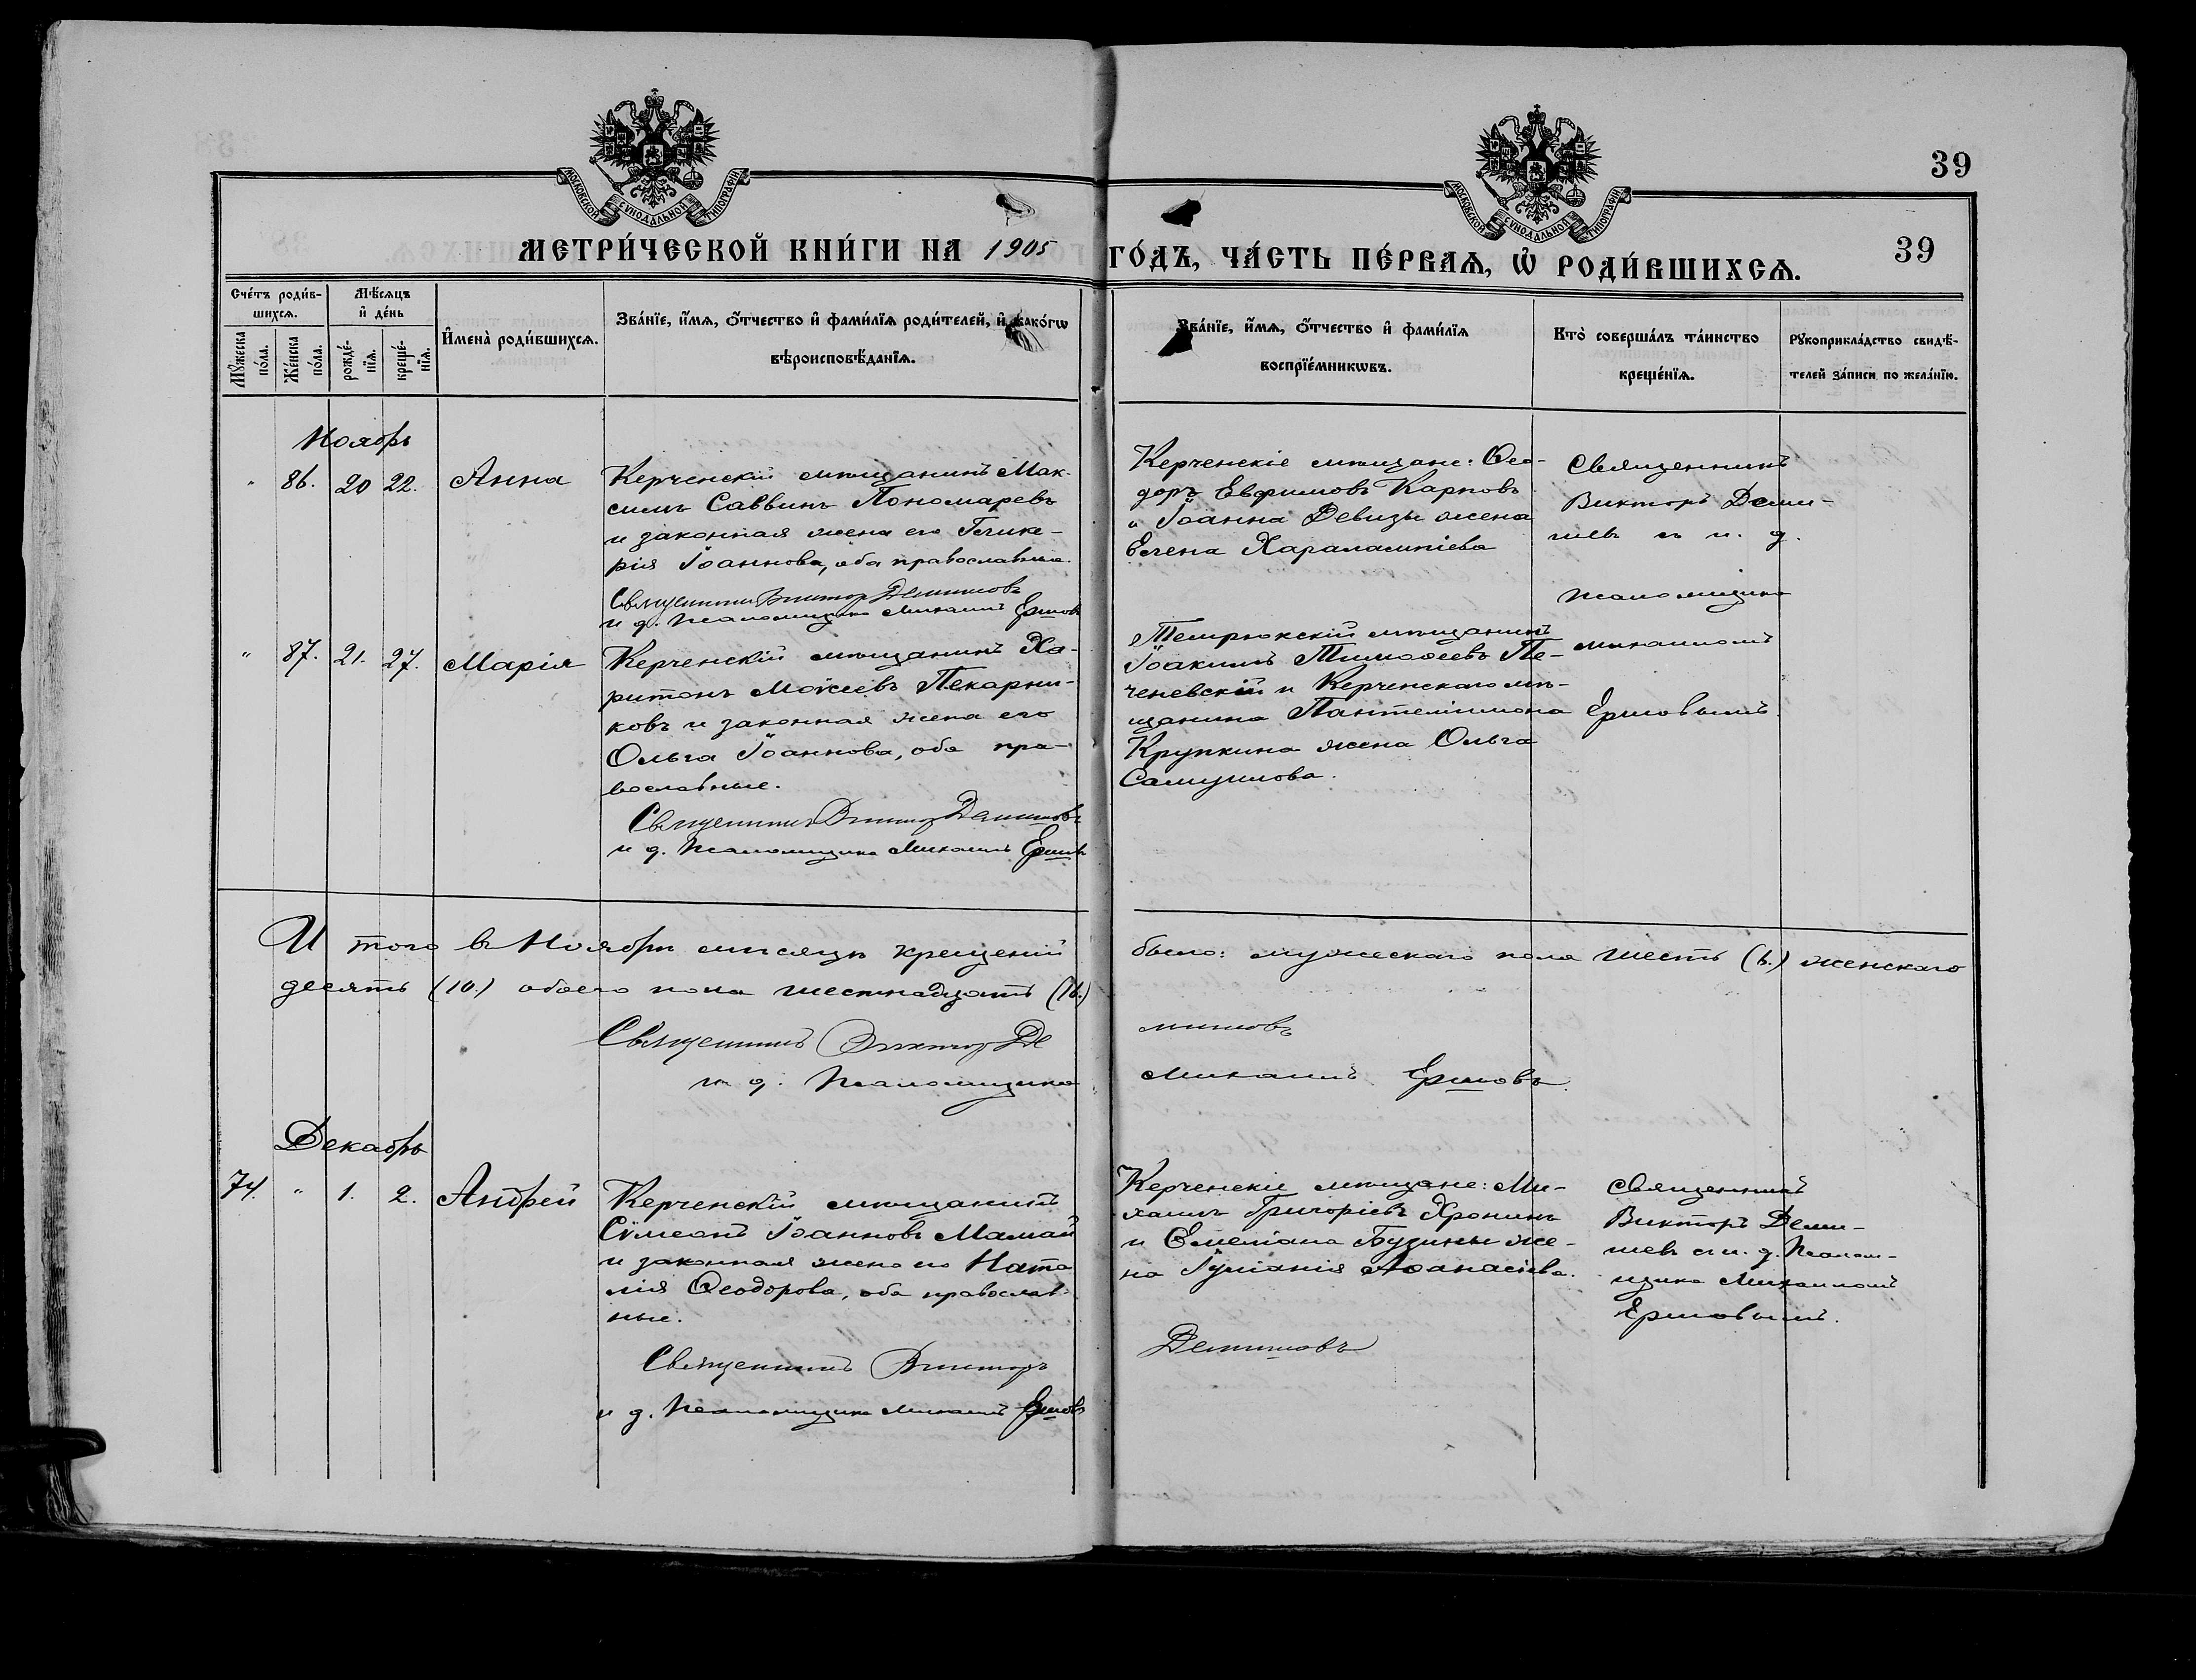 39
МОСКОВСКОЙ СУНОДАЛЬНОЙ ТИПОГРАФІИ
МОСКОВСКОЙ СУНОДАЛЬНОЙ ТИПОГРАФІИ
МЕТРИ́ЧЕСКОЙ КНИ́ГИ НА 1905 ГО́ДЪ, ЧА́СТЬ ПЕ́РВАѦ, Ѡ҆ РОДИ́ВШИХСѦ.
39
Сче́тъ роди́в-
шихсѧ.
Мѣ́сѧцъ
и҆ де́нь
Мꙋ́жеска
по́ла.
Же́нска
по́ла.
рожде́-
нїѧ.
креще́-
нїѧ.
И҆мена̀ роди́вшихсѧ.
Зва́нїе, и҆́мѧ, ѻ҆́тчество и҆ фами́лїѧ роди́телей, и҆ како́гѡ
вѣроисповѣ́данїѧ.
Зва́нїе, и҆́мѧ, ѻ҆́тчество и҆ фами́лїѧ
воспрїе́мникѡвъ.
Кто̀ соверша́лъ та́инство
креще́нїѧ.
Рꙋкоприкла́дство свидѣ́-
телей за́писи по жела́нїю.
Ноябрь
" 86. 20 22. Анна
Керченскій мѣщанинъ Мак-
симъ Саввинъ Пономаревъ
и законная жена его Глике-
рія Іоаннова, оба православные.
Священникъ Викторъ Демишовъ
и д. псаломщика Михаилъ Ершовъ
Керченскіе мѣщане: Ѳео-
доръ Евфимовъ Карповъ
и Іоанна Девизы жена
Елена Харалампіева
Священникъ
Викторъ Деми-
шевъ съ и. д.
псаломщика
Михаиломъ
Ершовымъ.
" 87. 21. 27. Марія
Керченскій мѣщанинъ Ха-
ритонъ Моисеевъ Пекарни-
ковъ и законная жена его
Ольга Іоаннова, оба пра-
вославные.
Священникъ Викторъ Демишовъ
и д. псаломщика Михаилъ Ершовъ
Темрюкскій мѣщанинъ
Іоакимъ Тимоѳеевъ Пе-
ченевскій и Керченскаго мѣ-
щанина Пантелеимона
Крупкина жена Ольга
Самуилова.
И того в Ноябрѣ мѣсяцѣ крещеній было: мужескаго пола шесть (6.) женскаго
десять (10.) обоего пола шестнадцать (16.)
Священникъ Викторъ Демишовъ
и д. псаломщика Михаилъ Ершовъ.
Декабрь
74. " 1. 2. Андрей
Керченскій мѣщанинъ
Сѵмеонъ Іоанновъ Мамай
и законная жена его Ната
лія Ѳеодорова, оба православ-
ные.
Священникъ Викторъ Демишовъ
и д. псаломщика Михаилъ Ершовъ
Керченскіе мѣщане: Ми-
хаилъ Григорьевъ Хронинъ
и Емеліана Бузины же-
на Іуліанія Аѳанасіева.
Священникъ
Викторъ Деми-
шевъ съ и. д. псалом-
щика Михаиломъ
Ершовымъ.